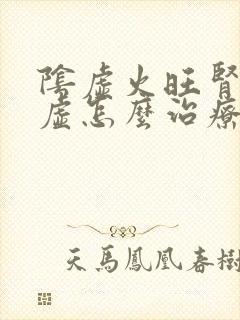 陰虛火旺腎
虛怎麼治療
天馬鳳凰春樹